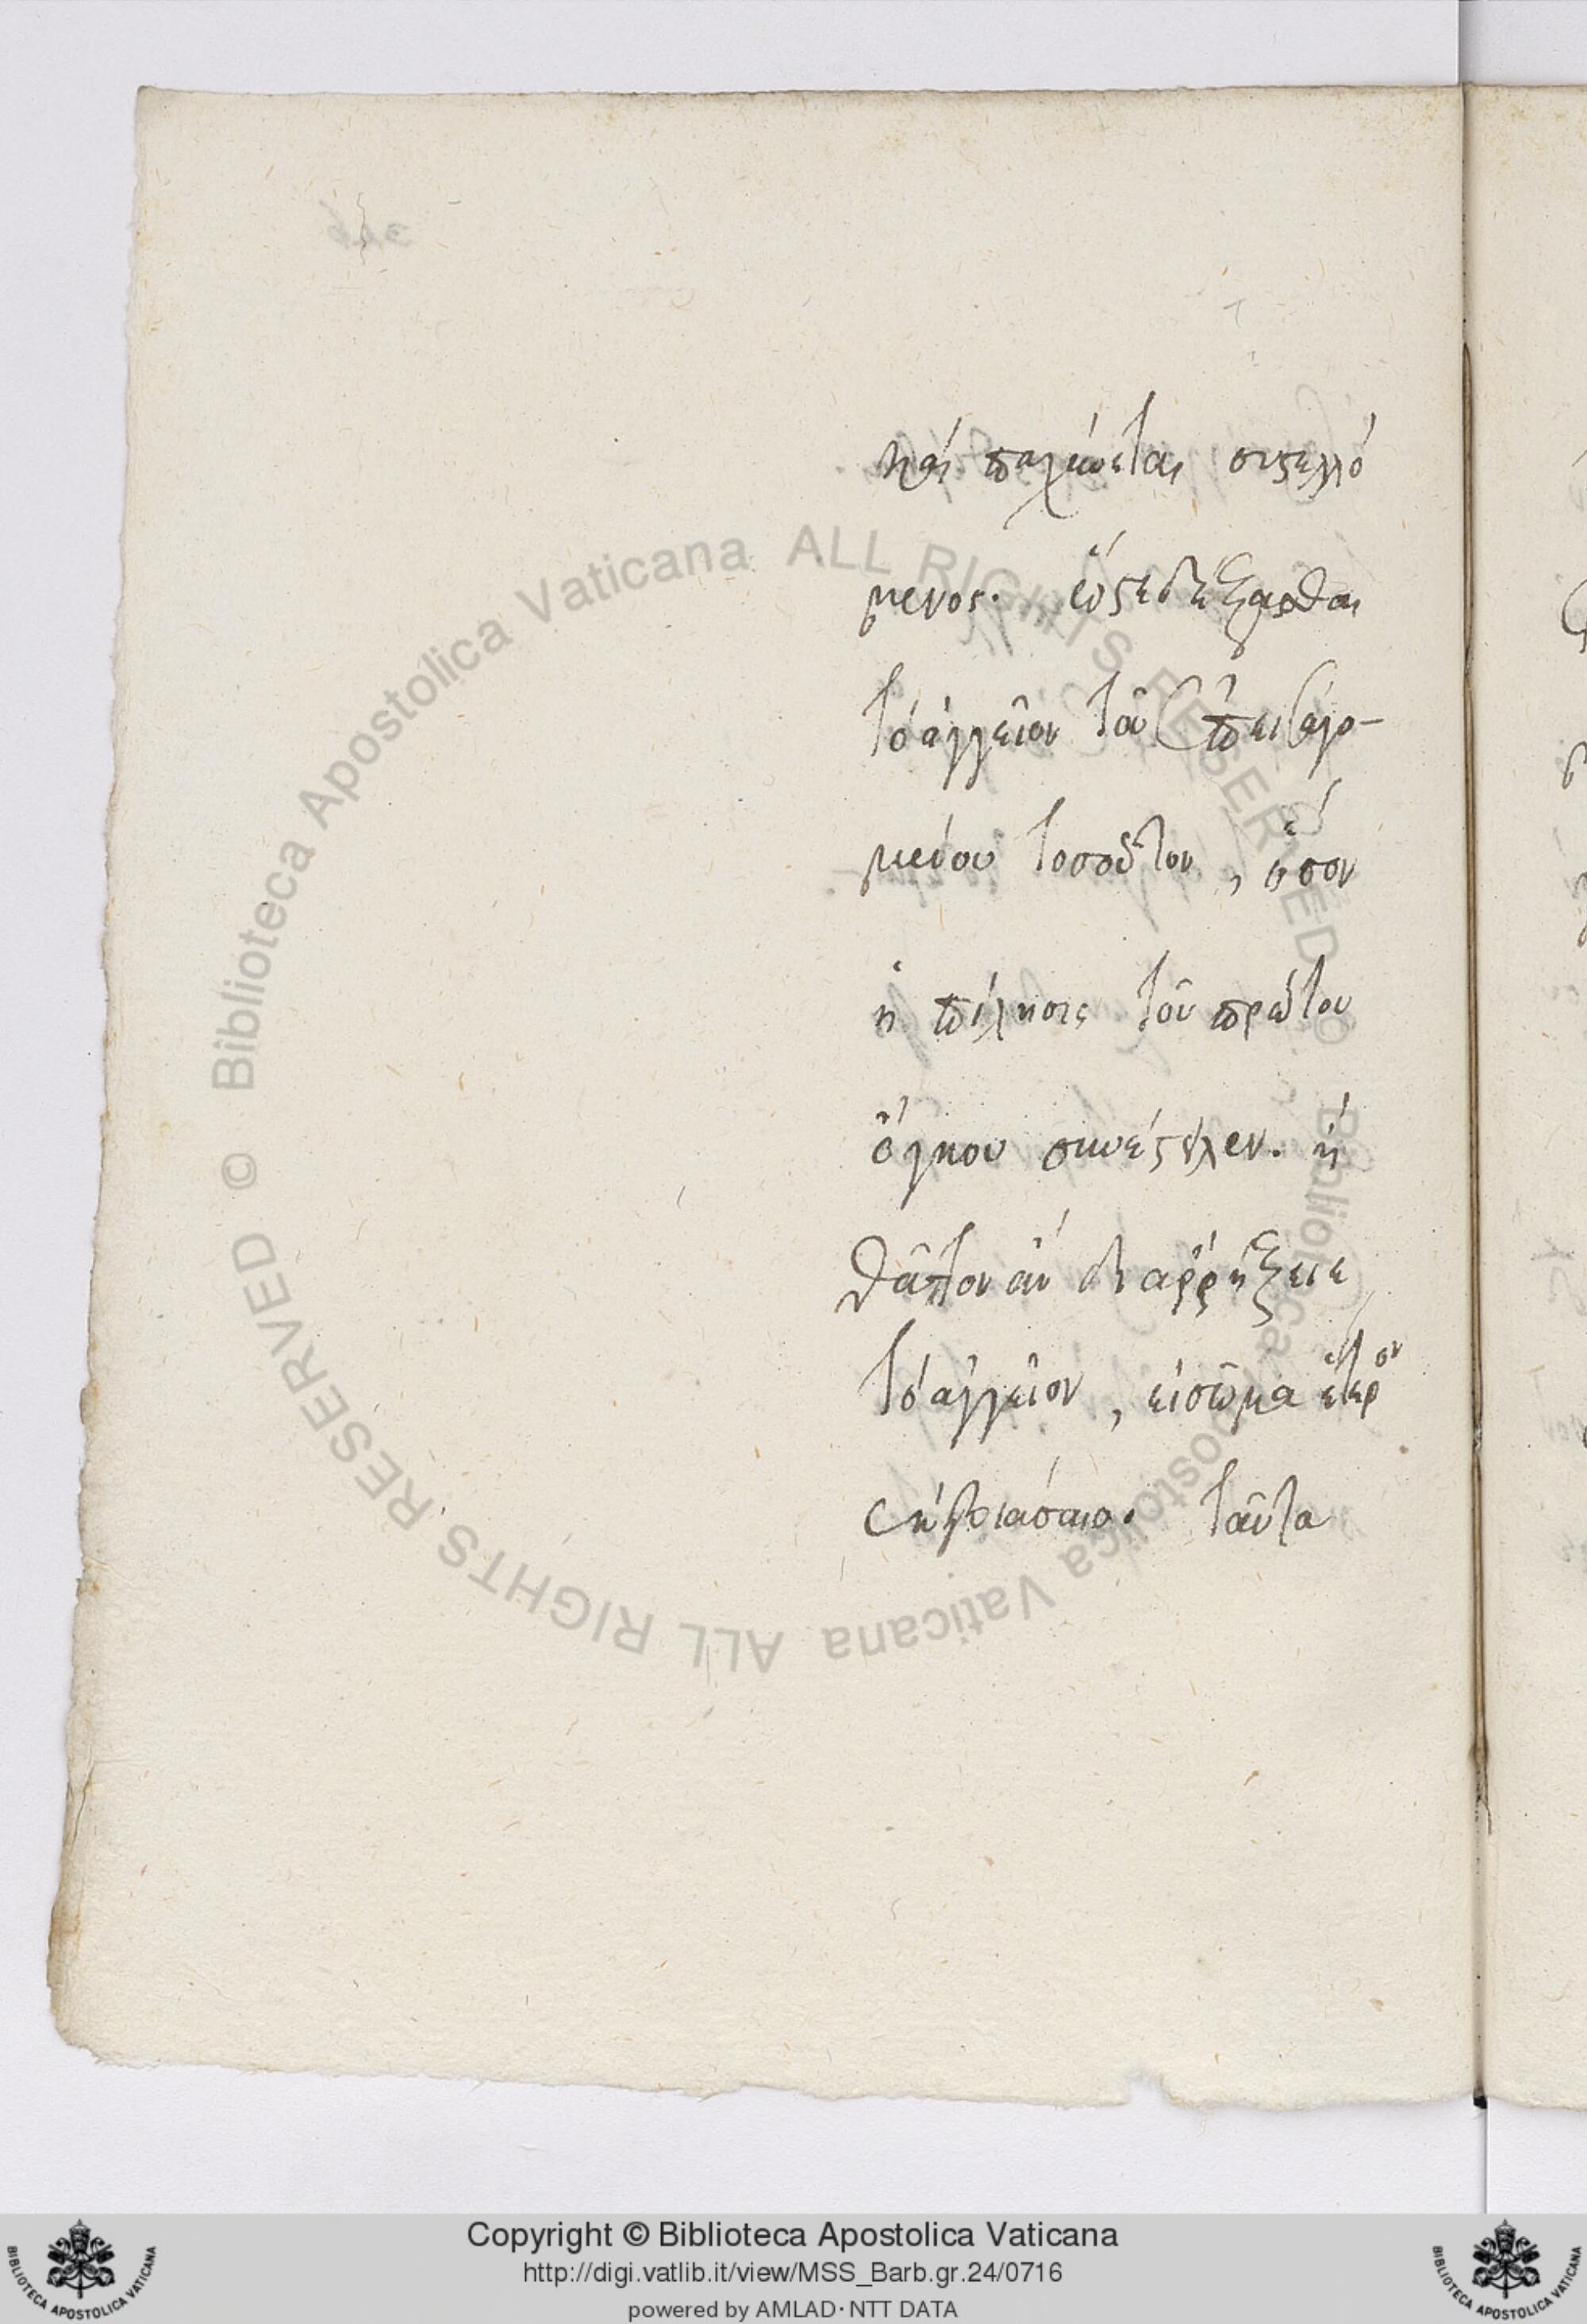 καὶ παχύνεται συστελλό
μενος. ὥστε δέξασθαι
τὸ ἀγγεῖον τοῦ ἐπεισαγο-
μένου τοσοῦτον, ὅσον
ἡ πίλησις τοῦ πρώτου
ὄγκου συνέστειλεν. ἢ
θᾶττον ἂν διαρρήξειε
τὸ ἀγγεῖον, εἰ σῶμα ἕτερον
ταῦτα
© Biblioteca Apostolica Vaticana ALL RIGHTS RESERVED © Biblioteca Apostolica Vaticana ALL RIGHTS RESERVED
Copyright © Biblioteca Apostolica Vaticana
http://digi.vatlib.it/view/MSS_Barb.gr.24/0716
powered by AMLAD · NTT DATA
BIBLIOTECA APOSTOLICA VATICANA
BIBLIOTECA APOSTOLICA VATICANA